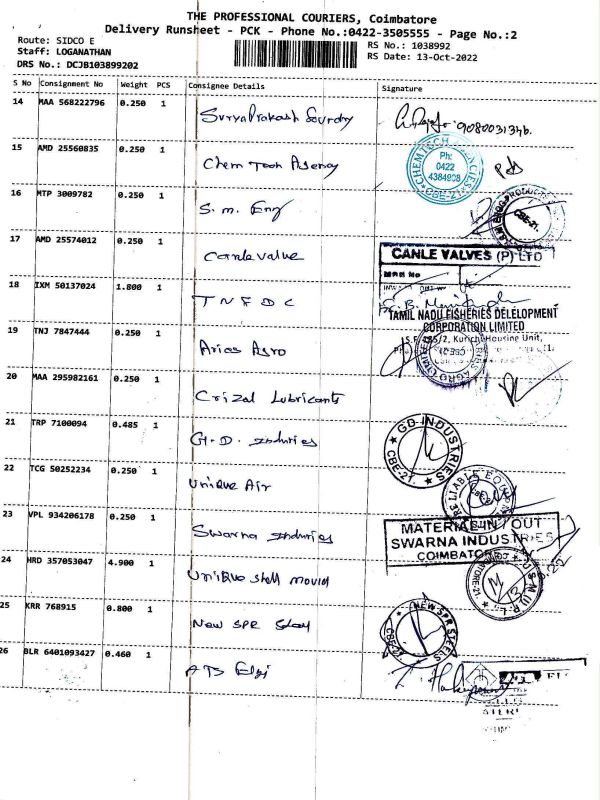 THE PROFESSIONAL COURIERS, Coimbatore
Delivery Runsheet - PCK - Phone No.:0422-3505555 - Page No.:2
Route: SIDCO E
Staff: LOGANATHAN
DRS No.: DCJB103899202
RS No.: 1038992
RS Date: 13-Oct-2022
S No Consignment No Weight PCS Consignee Details Signature
14 MAA 568222796 0.250 1 SuryaPrakash Foundry 9080031346.
15 AMD 25560835 0.250 1 Chem Tech Agency
CHEMTECH AGENCIES
Ph:
0422
4384908
CBE-21.
16 MTP 3009782 0.250 1 S.m. Eng
CBE-21.
17 AMD 25574012 0.250 1 Canle valve
CANLE VALVES (P) LTD
18 IXM 50137024 1.800 1 T N F D C
TAMIL NADU FISHERIES DELELOPMENT
CORPORATION LIMITED
Kurichi Housing Unit,
19 TNJ 7847444 0.250 1 Aries Agro
20 MAA 295982161 0.250 1 Crizal Lubricants
21 TRP 7100094 0.485 1 G.D. Industries
GD INDUSTRIES
CBE-21.
22 TCG 50252234 0.250 1 Unique Air
RELIABLE EQUIP
23 VPL 934206178 0.250 1 Swarna Industries
MATERIAL IN / OUT
SWARNA INDUSTRIES
COIMBATORE
24 HRD 357053047 4.900 1 Unique Shell
25 KRR 768915 0.800 1 New SPR Steel
NEW SPR STEELS
CBE-21
26 BLR 6401093427 0.460 1 ATS Elgi